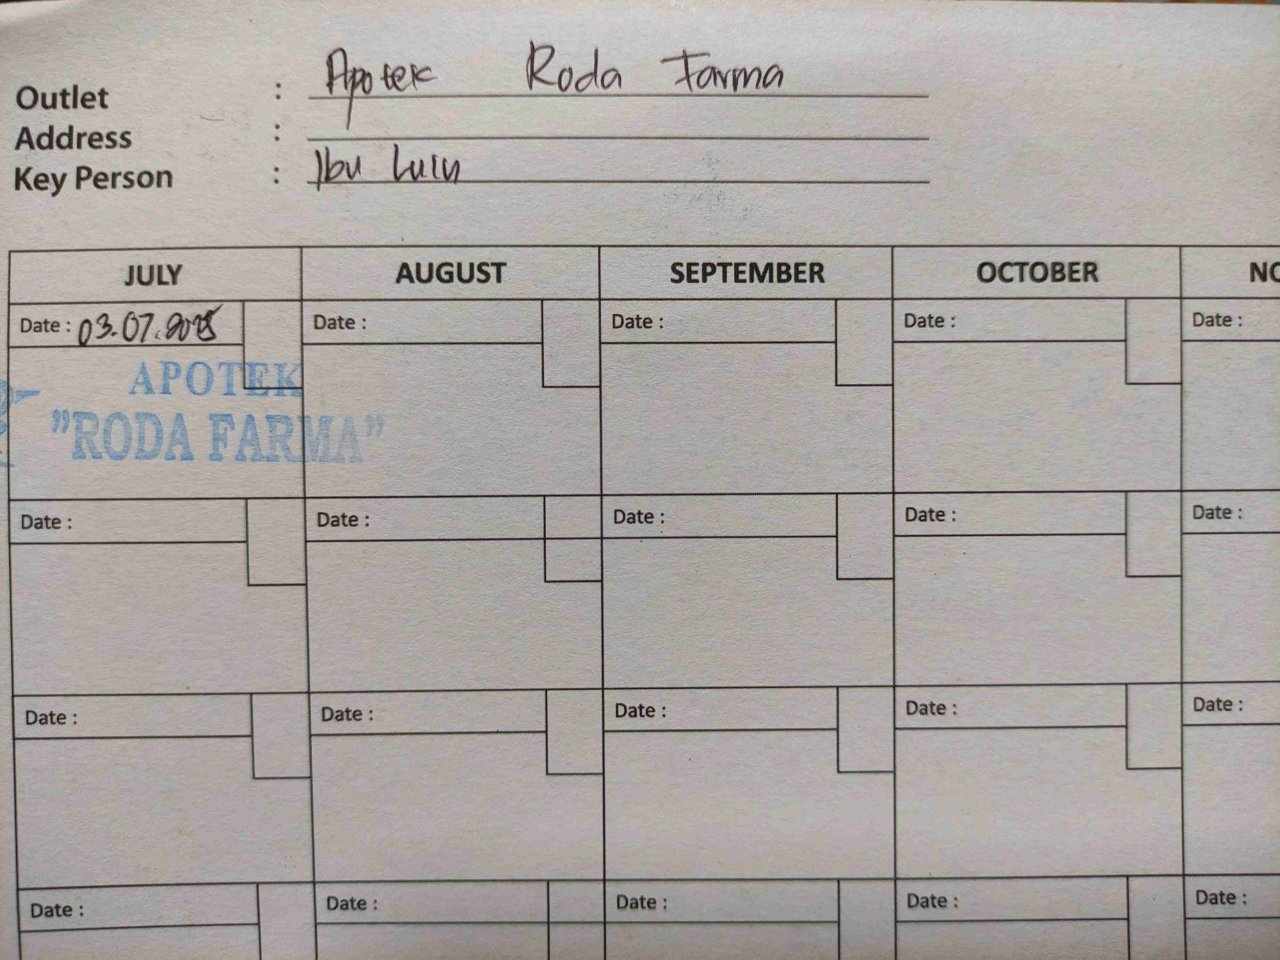 Outlet : Apotek Roda Farma
Address :
Key Person : Ibu Lulu
JULY AUGUST SEPTEMBER OCTOBER NO
Date : 03.07.2025 Date : Date : Date : Date :
APOTEK
"RODA FARMA"
Date : Date : Date : Date : Date :
Date : Date : Date : Date : Date :
Date : Date : Date : Date : Date :